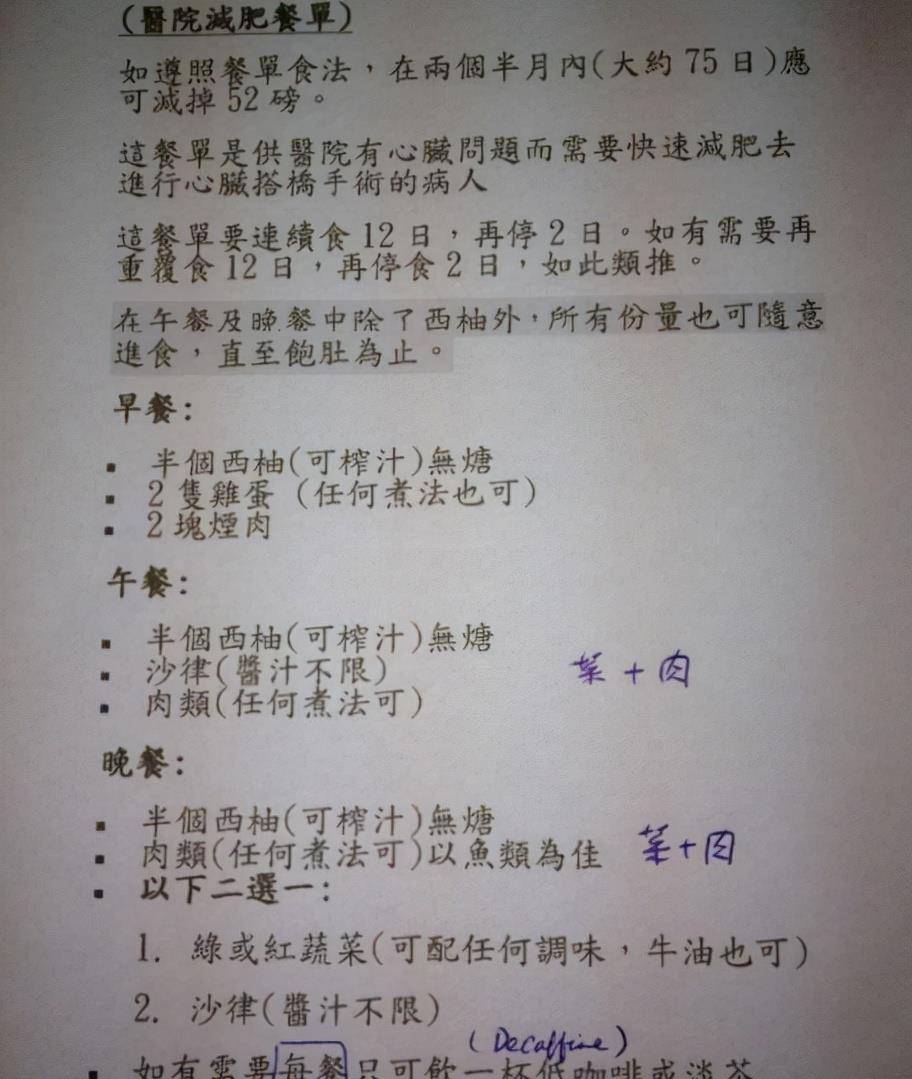 (醫院減肥餐單)
如遵照餐單食法，在兩個半月內(大約 75 日)應
可減掉 52 磅。
這餐單是供醫院有心臟問題而需要快速減肥去
進行心臟搭橋手術的病人
這餐單要連續食 12 日，再停 2 日。如有需要再
重覆食 12 日，再停食 2 日，如此類推。
在午餐及晚餐中除了西柚外，所有份量也可隨意
進食，直至飽肚為止。
早餐:
▪ 半個西柚(可榨汁)無糖
▪ 2 隻雞蛋 (任何煮法也可)
▪ 2 塊煙肉
午餐:
▪ 半個西柚(可榨汁)無糖
▪ 沙律(醬汁不限) 菜+肉
▪ 肉類(任何煮法可)
晚餐:
▪ 半個西柚(可榨汁)無糖
▪ 肉類(任何煮法可)以魚類為佳 菜+肉
▪ 以下二選一:
1. 綠或紅蔬菜(可配任何調味，牛油也可)
2. 沙律(醬汁不限)
(Decaffine)
▪ 如有需要每餐只可飲一杯低咖啡或淡茶